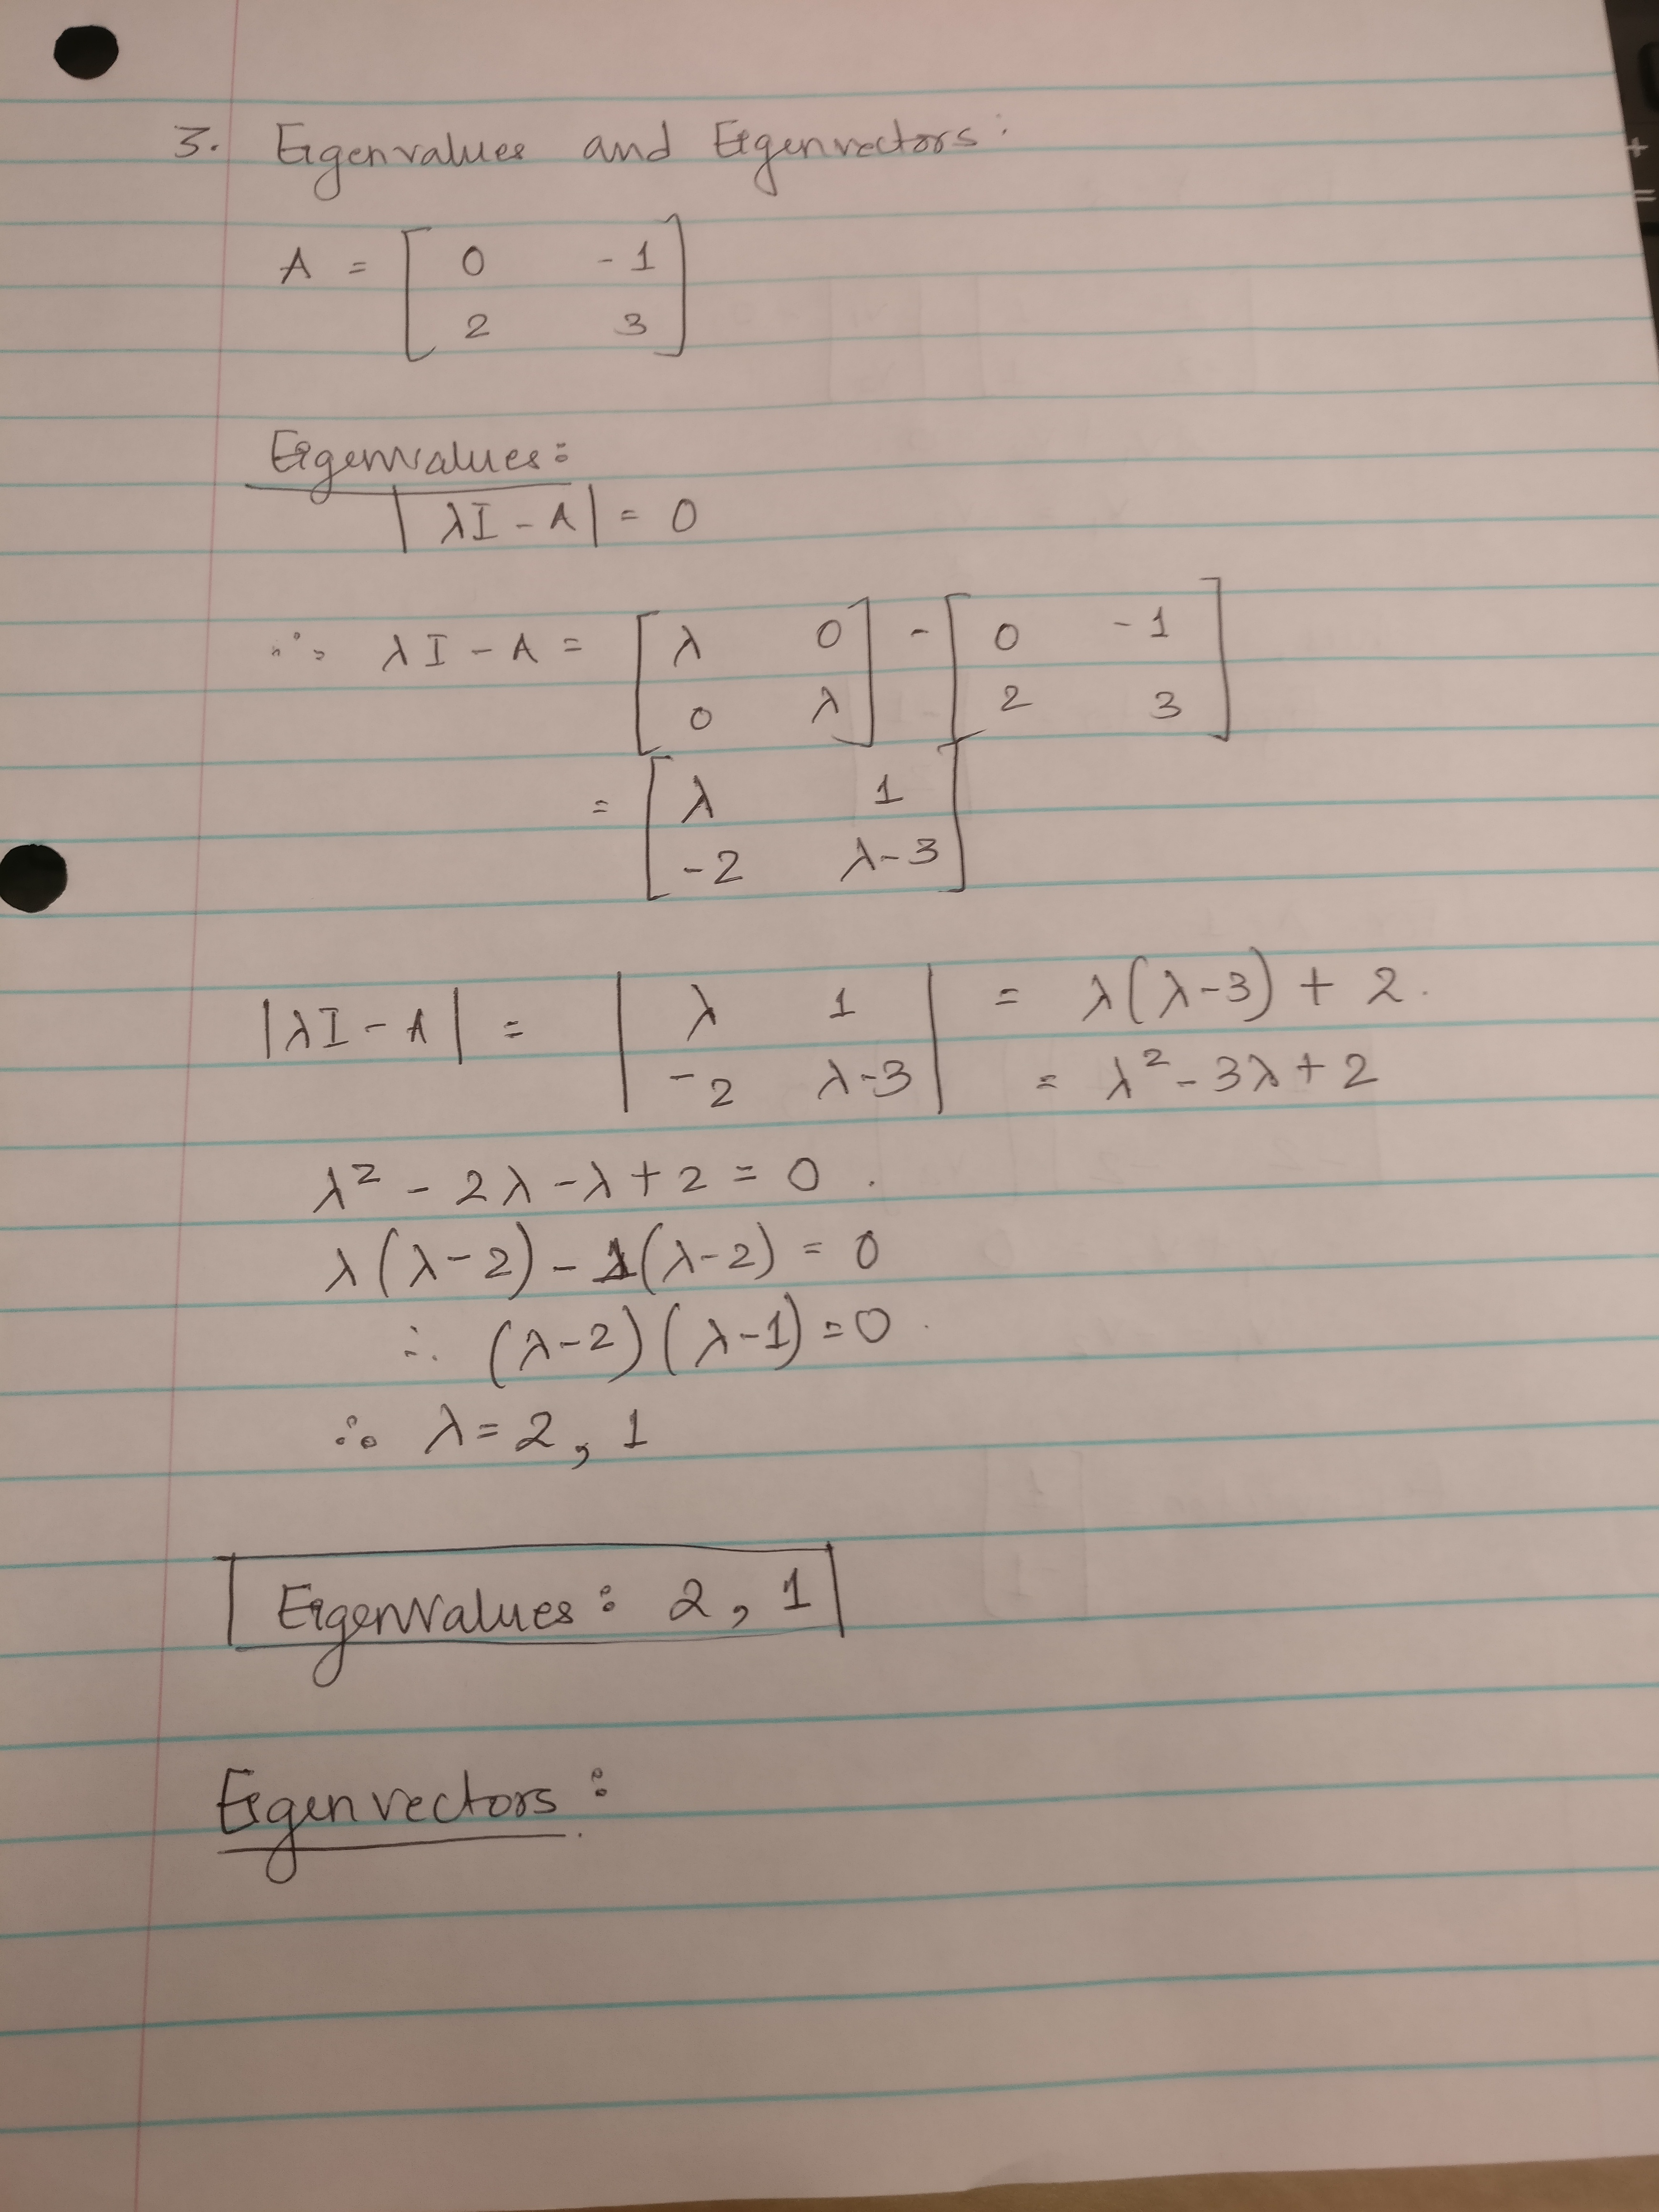 3. Eigenvalues and Eigenvectors:
A = [ 0 -1
2 3 ]
Eigenvalues:
| λI - A | = 0
∴ λI - A = [ λ 0 ] - [ 0 -1 ]
[ 0 λ ] [ 2 3 ]
= [ λ 1
-2 λ-3 ]
|λI - A| = | λ 1 | = λ(λ-3) + 2.
| -2 λ-3 | = λ² - 3λ + 2
λ² - 2λ - λ + 2 = 0.
λ(λ-2) - 1(λ-2) = 0
∴ (λ-2)(λ-1) = 0.
∴ λ = 2, 1
Eigenvalues: 2, 1
Eigenvectors: